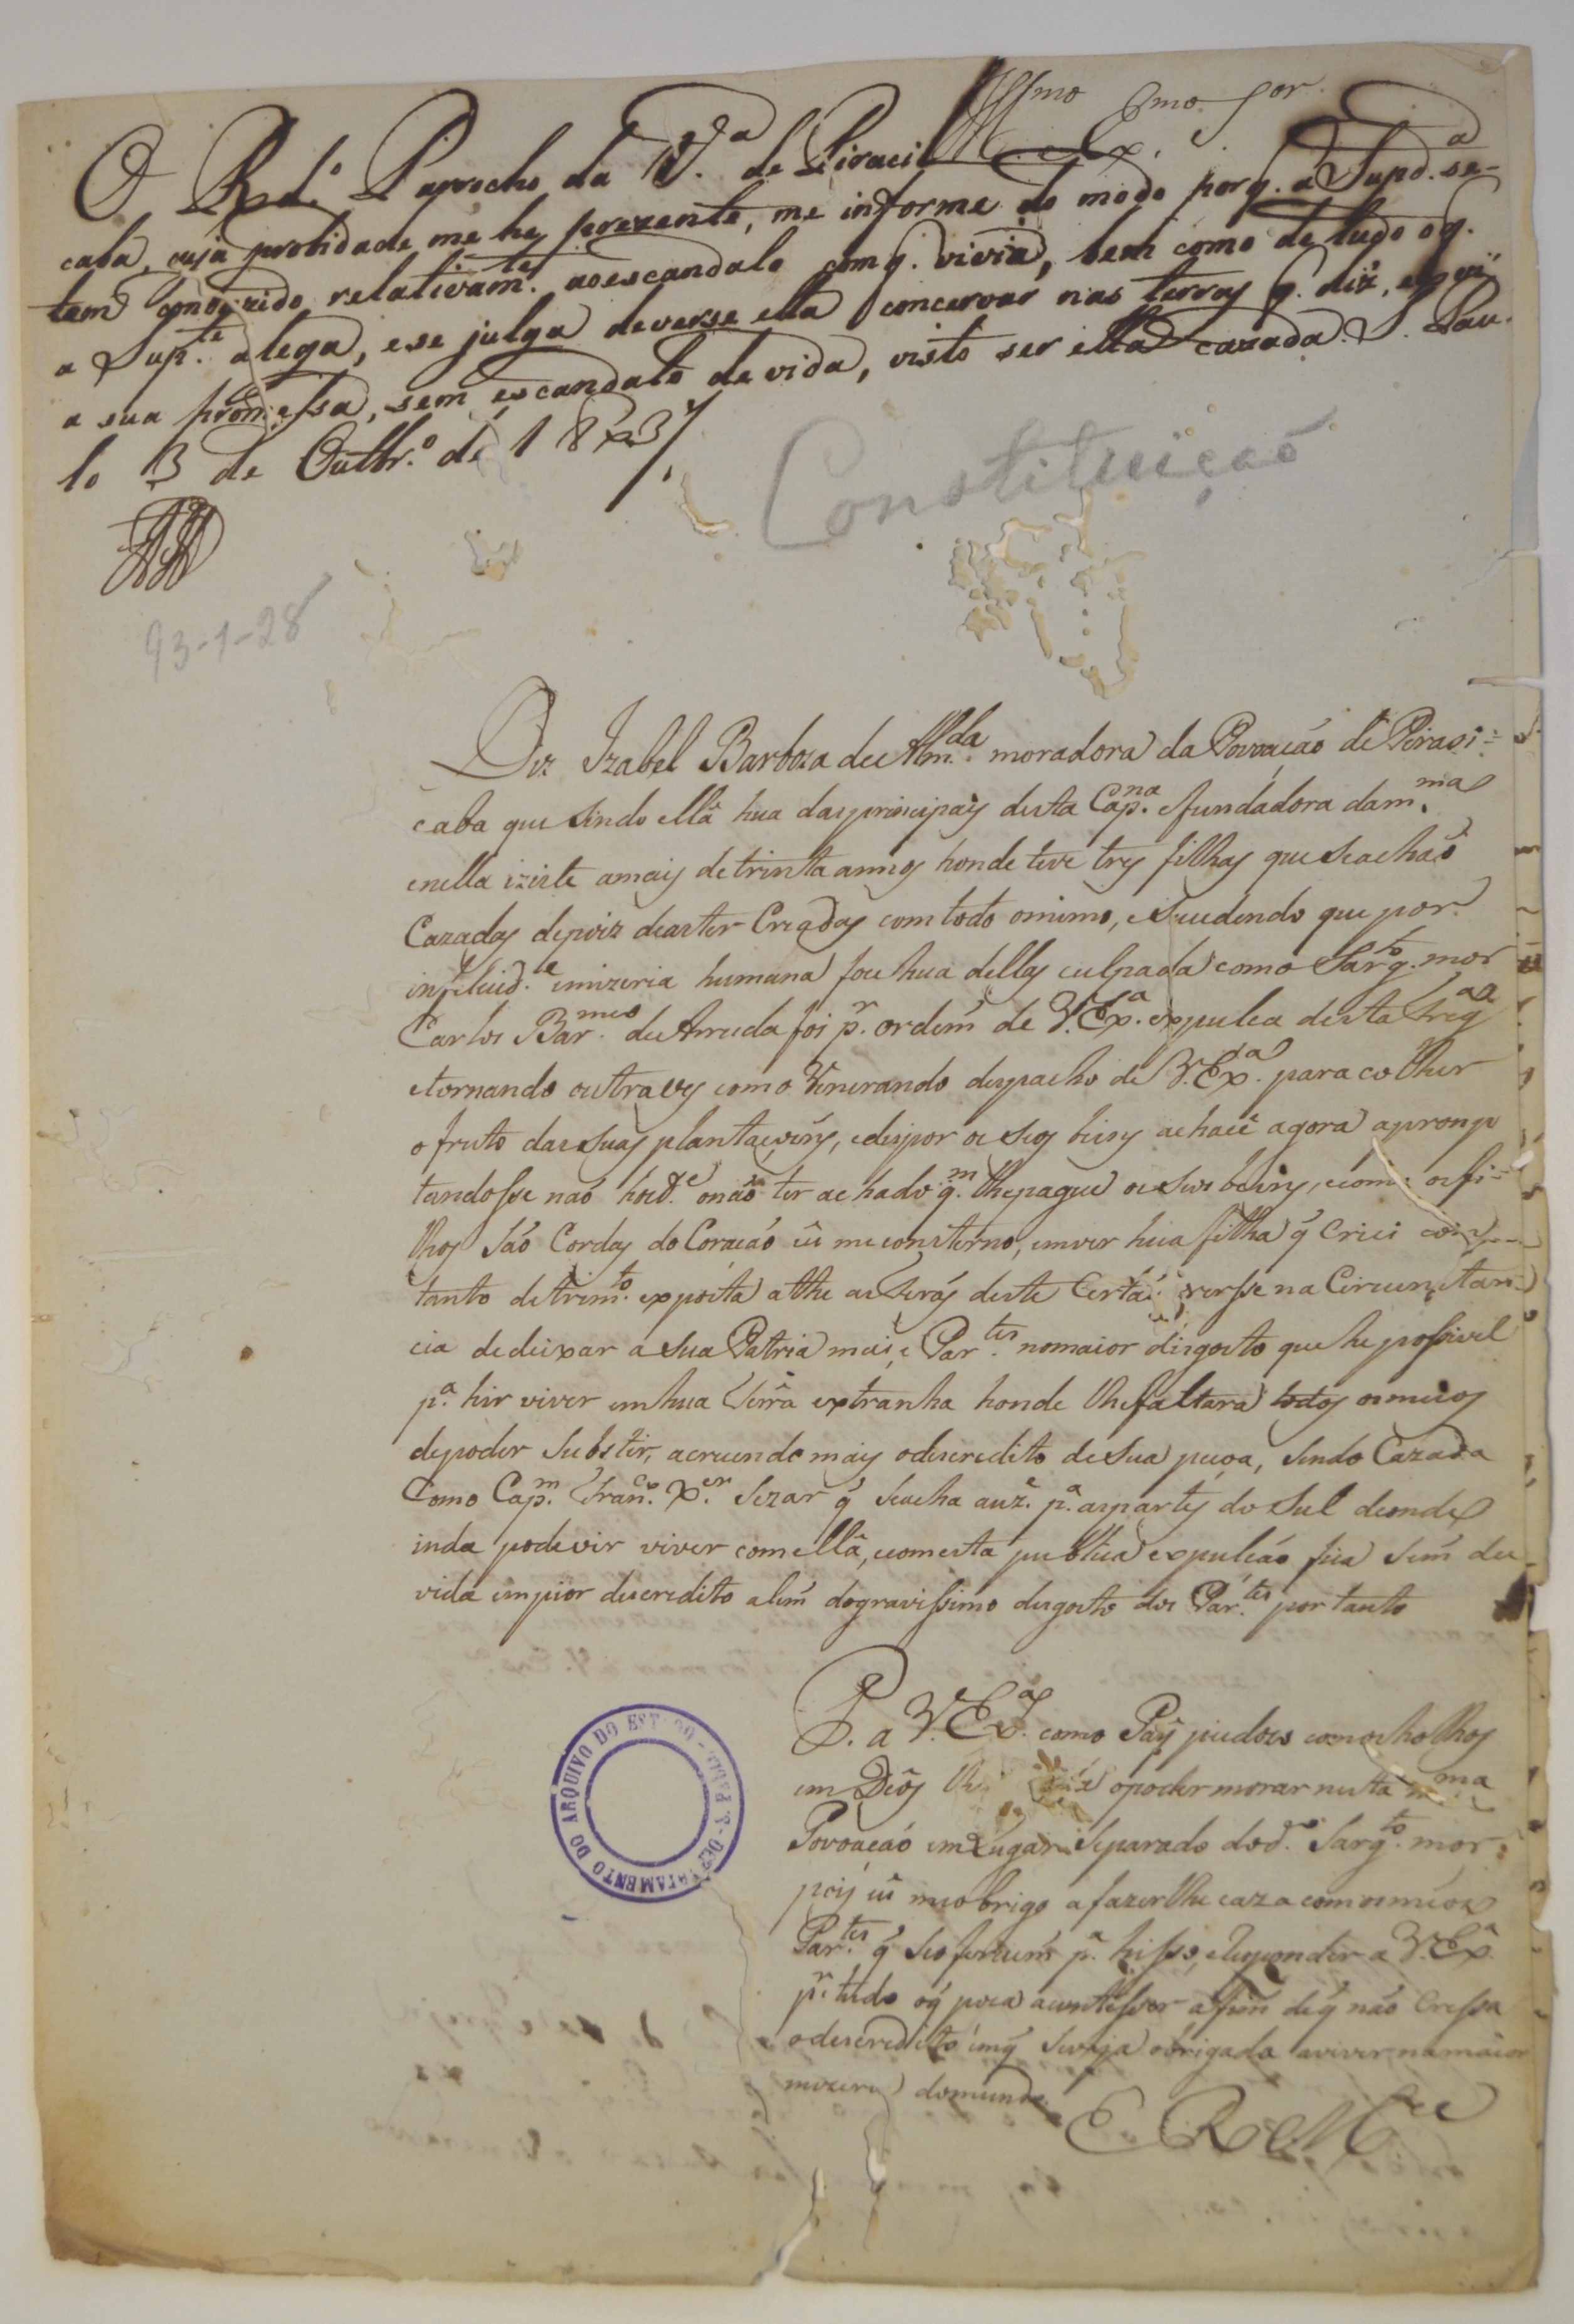 Illmo Exmo Sor
O Rd.º Parrocho da V.ª de Piraci
caba, cuja probidade me he prezente, me informe do modo porq. a Supd.ª se-
tem conduzido relativam.te ao escandalo com q. vivia, bem como de tudo o q.
a Sup.te alega, e se julga deverse ella concervar nas terras q. diz,
a sua promessa, sem escandalo de vida, visto ser ella cazada. S. Pau-
lo 3 de Outbr.º de 1823/.
Constituiçaõ
93-1-28
Diz Izabel Barboza de Alm.da moradora da Povoaçaõ de Pirasi=
caba que sendo ella hua das principais desta Cap.na e fundadora da m.ma
e nella iziste a mais de trinta annos honde teve tres filhas que se achaõ
Cazadas depois de as ter Creadas com todo o mimo, e sucedendo que por
infelicid.e e mizeria humana foce hua dellas culpada com o Sarg.to mor
Carlos Bar.meo de Arruda foi p.r ordem de V. Ex.ª expulca desta Freg.ª
e tornando outra ves com o Venerando despacho de V. Ex.ª para colher
o fruto das suas plantaçoins, e dispor os seos beins achace agora apromp
tandosse naõ hod.e o naõ ter achado q.m lhe pague os seus beins, e como os fi=
lhos saõ Cordas do Coraçaõ eu me consterno, em ver hua filha q̃ Criei com
tanto detrim.to exposta athe as feras deste Certaõ e versse na Circunstan=
cia de deixar a sua Patria mai, e Par.tes no maior disgosto que he possivel
p.ª hir viver em hua terra extranha honde lhe faltara todos os meios
de poder Subster, acrecendo mais o descredito de sua pecoa, sendo Cazada
Com o Cap.m Fran.co X.er Sezar q̃ se acha auz.e p.ª as partes do Sul de onde
inda pode vir viver com ella, e com esta publica expulçaõ fica sem du
vida em pior descredito alem do gravissimo disgosto dos Par.tes por tanto
P. a V. Ex.ª como Pay piedozo com os holhos
em Deos lhe opoder morar nesta m.ma
Povoaçaõ em Lugar Separado do d.º Sarg.to mor
pois eu me obrigo a fazerlhe caza com os meos
Par.tes q̃ se oferecem p.ª hisso, e responder a V. Ex.ª
p.r tudo o q̃ poca acontesser a fim de q̃ naõ Cressa
o descredito em q̃ se veja obrigada a viver na maior
mizeria do mundo
E R Mce
DEPARTAMENTO DO ARQUIVO DO ESTADO - S. PAULO